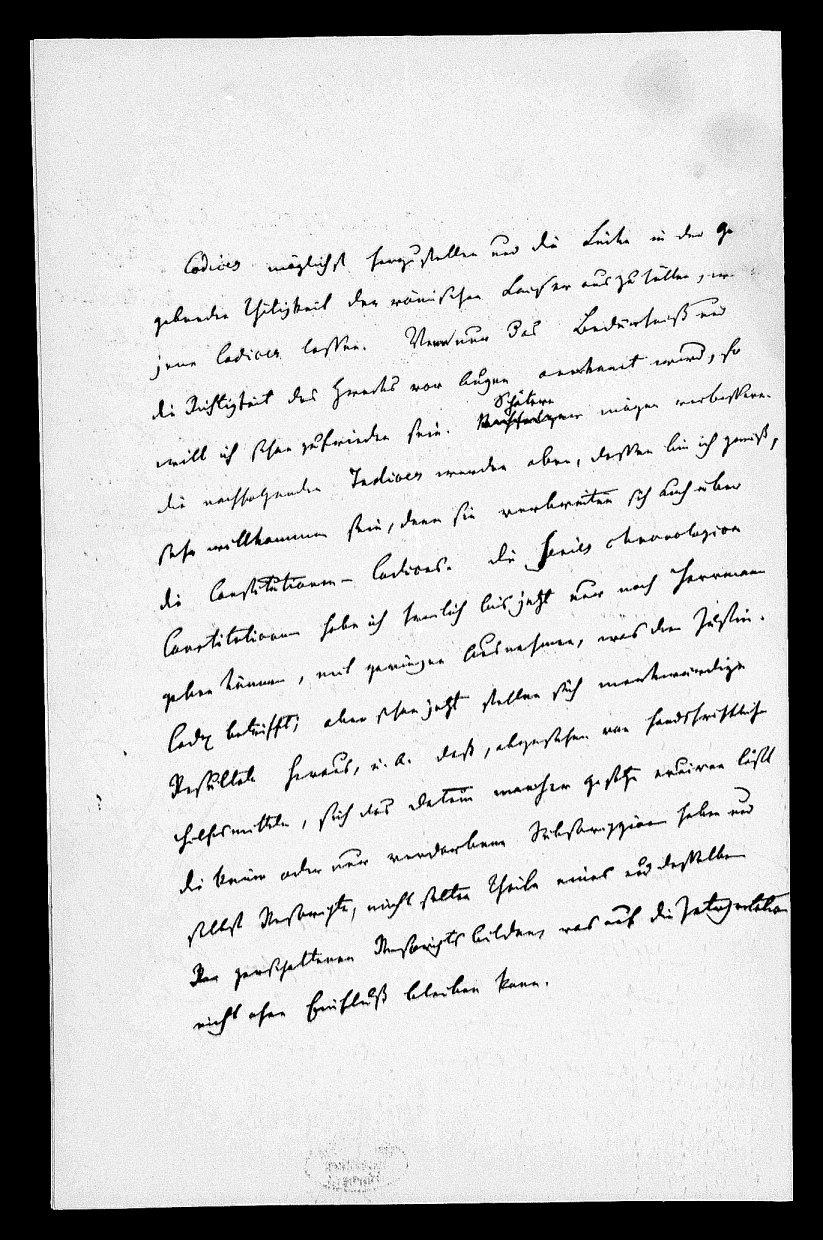 Codices möglichst herzustellen und die Lücken in der ge
gebenden Thätigkeit der römischen Kaiser auszufüllen, w
jene Codices lassen. Wenn nur das Bedürfniß und
die Richtigkeit des Zwecks vor Augen anerkannt wird, so
will ich schon zufrieden sein. Spätere mögen verbessern.
die nachfolgenden Indices werden aber, dessen bin ich gewiß,
sehr willkommen sein, denn sie verbreiten sich auch über
die Constitutionen-Codices. die Series chronologica
Constitutionum habe ich freilich bis jetzt nur nach Herrmann
geben können, mit geringen Ausnahmen, was den Justin.
Codex betrifft; aber schon jetzt stellen sich merkwürdige
Resultate heraus, u. a. daß, abgesehen von handschriftlichen
Hilfsmitteln, sich das Datum mancher Gesetze eruiren läßt
die keine oder nur verdorbene Subscription haben und
selbst Rescripte, nicht selten Theile eines und desselben
zerspaltenen Rescripts bilden, was auf die Interpretation
nicht ohne Einfluß bleiben kann.